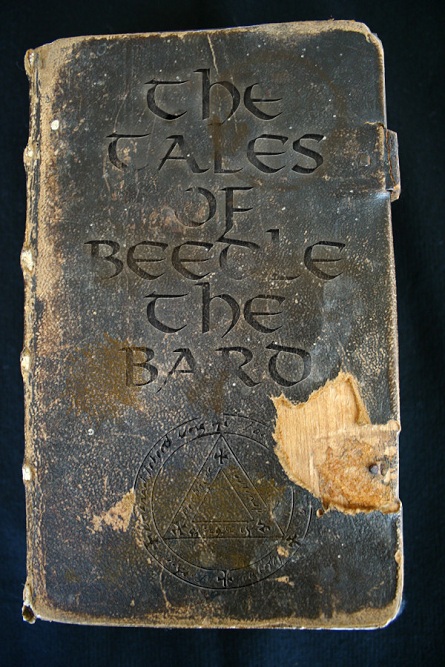 THE
TALES
OF
BEEDLE
THE
BARD